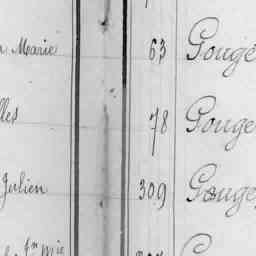 Marie 63 Gouge
lles 78 Gouge
Julien 309 Gouge